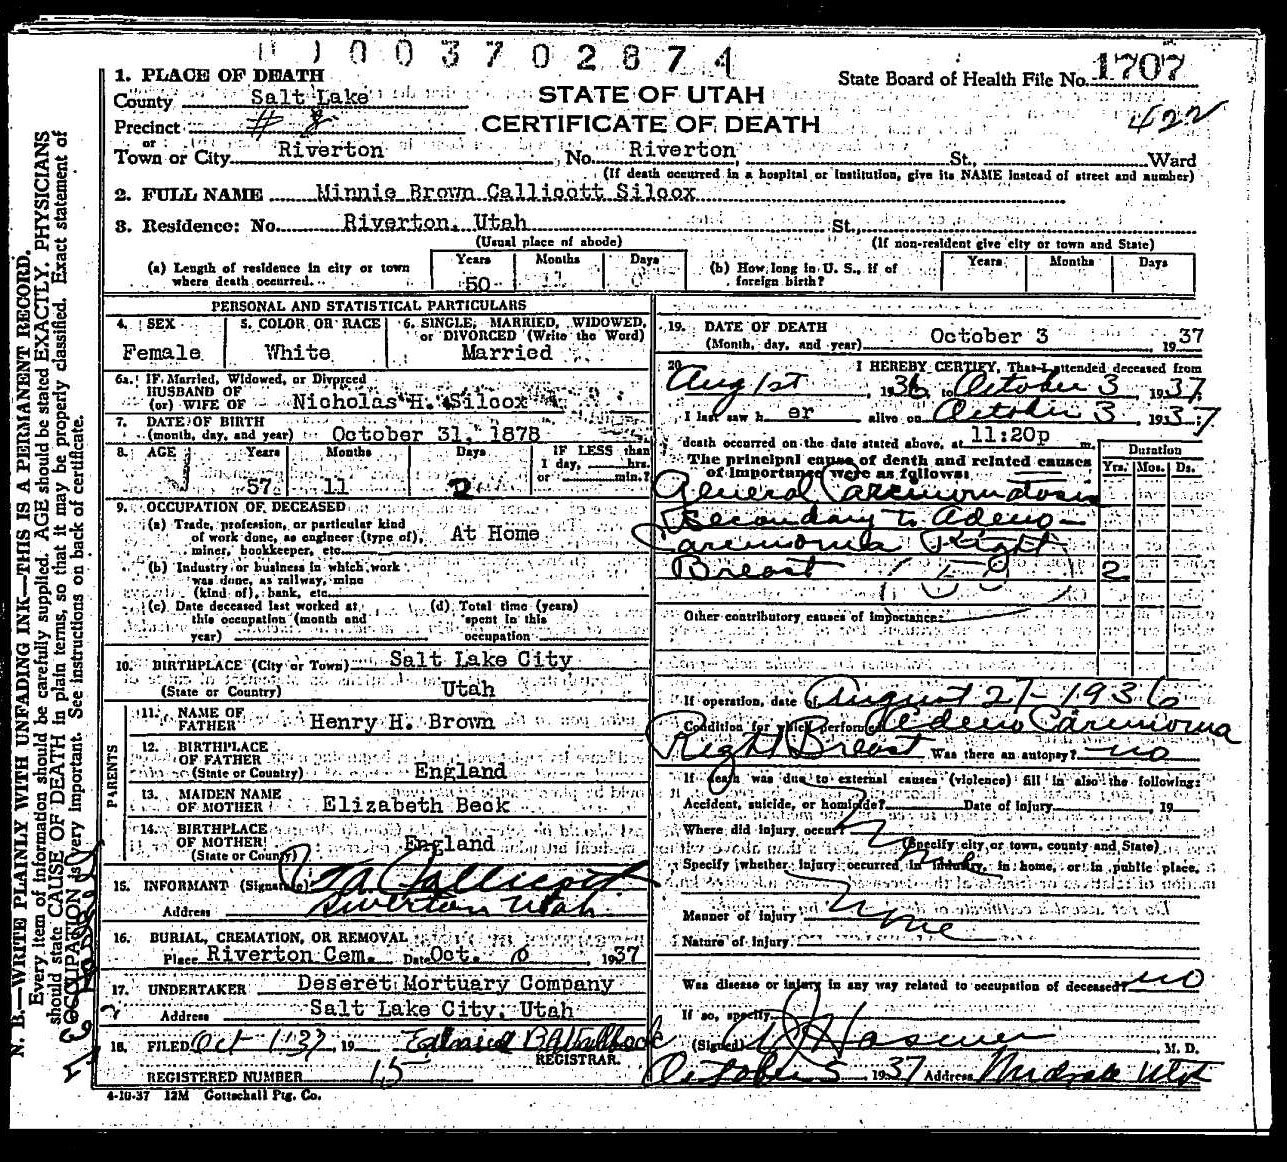 003702874
1. PLACE OF DEATH
State Board of Health File No. 1707
County Salt Lake
STATE OF UTAH
422
Precinct # 8
CERTIFICATE OF DEATH
or
Town or City Riverton No. Riverton, St., Ward
(If death occurred in a hospital or institution, give its NAME instead of street and number)
2. FULL NAME Minnie Brown Callicott Silcox
3. Residence: No. Riverton, Utah St.,
(Usual place of abode) (If non-resident give city or town and State)
(a) Length of residence in city or town where death occurred. Years 50 Months Days
(b) How long in U. S., if of foreign birth? Years Months Days
PERSONAL AND STATISTICAL PARTICULARS
4. SEX Female
5. COLOR OR RACE White
6. SINGLE, MARRIED, WIDOWED, or DIVORCED (Write the Word) Married
6a. If Married, Widowed, or Divorced
HUSBAND OF
(or) WIFE OF Nicholas H. Silcox
7. DATE OF BIRTH
(month, day, and year) October 31, 1878
8. AGE Years 57 Months 11 Days 2
IF LESS than 1 day, hrs. or min.?
9. OCCUPATION OF DECEASED
(a) Trade, profession, or particular kind
of work done, as engineer (type of), At Home
miner, bookkeeper, etc.
(b) Industry or business in which work
was done, as railway, mine
(kind of), bank, etc.
(c) Date deceased last worked at this occupation (month and year)
(d) Total time (years) spent in this occupation
10. BIRTHPLACE (City or Town) Salt Lake City
(State or Country) Utah
PARENTS
11. NAME OF FATHER Henry H. Brown
12. BIRTHPLACE OF FATHER
(State or Country) England
13. MAIDEN NAME OF MOTHER Elizabeth Beck
14. BIRTHPLACE OF MOTHER
(State or County) England
15. INFORMANT (Signature) Callicott
Address Riverton Utah
16. BURIAL, CREMATION, OR REMOVAL
Place Riverton Cem. Date Oct. 1937
17. UNDERTAKER Deseret Mortuary Company
Address Salt Lake City, Utah
18. FILED Oct 1937, 19
REGISTRAR.
REGISTERED NUMBER 15
4-10-37 12M Gottschall Ptg. Co.
19. DATE OF DEATH
(Month, day, and year) October 3 1937
20. I HEREBY CERTIFY, That I attended deceased from
Aug 1st, 1936, to October 3, 1937
I last saw her alive on October 3, 1937
death occurred on the date stated above, at 11:20p m.
The principal cause of death and related causes
of importance were as follows:
Duration
Yrs. Mos. Ds.
General Carcinomatosis
Secondary to Adeno-
Carcinoma Right
Breast 2
Other contributory causes of importance:
If operation, date of August 27-1936
Condition for which performed Adeno Carcinoma
Right Breast Was there an autopsy? no
If death was due to external causes (violence) fill in also the following:
Accident, suicide, or homicide? Date of injury 19
Where did injury occur?
(Specify city or town, county and State)
Specify whether injury occurred in industry, in home, or in public place.
Manner of injury
None
Nature of injury
Was disease or injury in any way related to occupation of deceased? no
If so, specify
(Signed) M. D.
October 5 1937 Address Midvale Utah
N. B.—WRITE PLAINLY WITH UNFADING INK—THIS IS A PERMANENT RECORD.
Every item of information should be carefully supplied. AGE should be stated EXACTLY. PHYSICIANS
should state CAUSE OF DEATH in plain terms, so that it may be properly classified. Exact statement of
OCCUPATION is very important. See instructions on back of certificate.